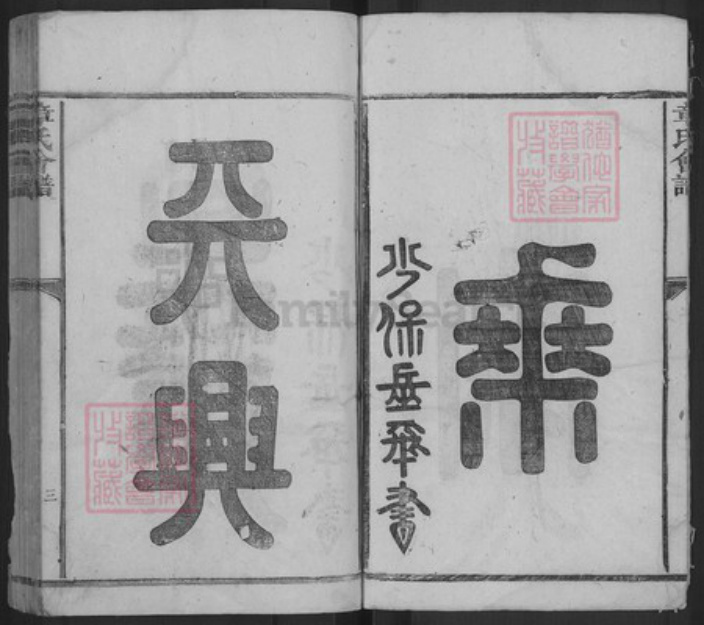 章氏會譜
猶他家
譜學會
收藏
乘
少保岳飛書
興
猶他家
譜學會
收藏
章氏會譜
三
FamilySearch